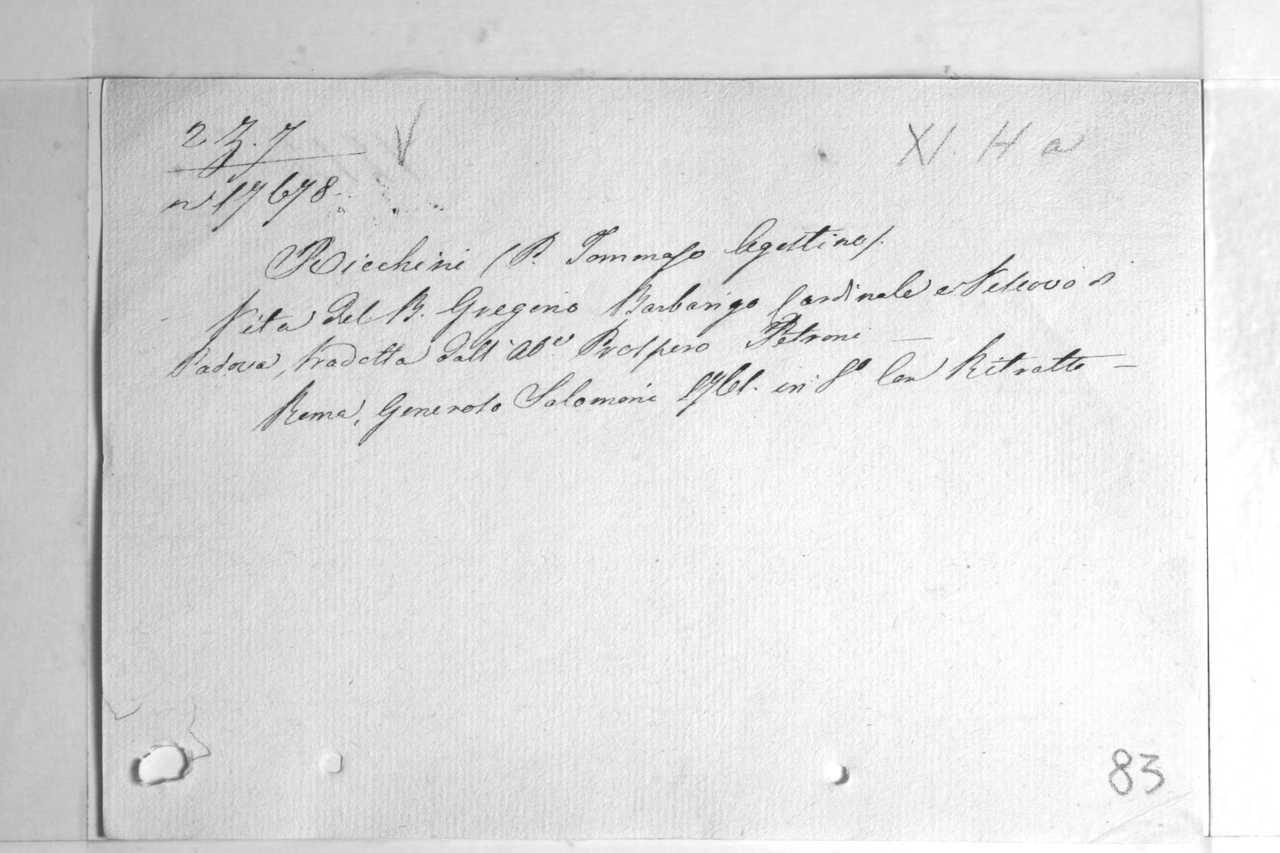 2 Z. 7
XI. H a
n° 17678
Ricchini (P. Tommaso Agostino).
Vita del B. Gregorio Barbarigo Cardinale e Vescovo di
Padova, tradotta dall' Ab.e Prospero Petroni —
Roma, Generoso Salomoni 1761. in 8° Con Ritratto —
83